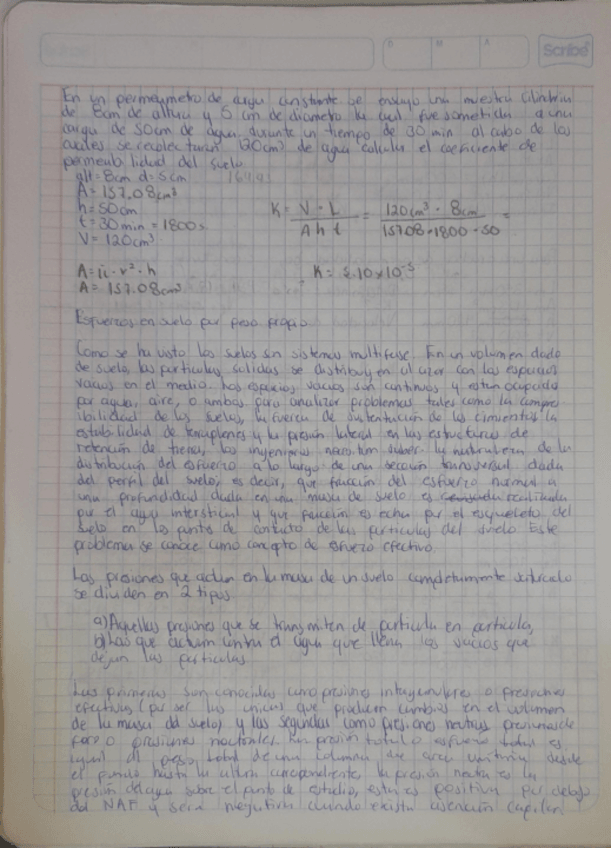 D M A Scribe
En un permeametro de carga constante se ensayo una muestra cilindrica
de 8cm de altura y 5 cm de diametro la cual fue sometida a una
carga de 50cm de agua, durante un tiempo de 30 min al cabo de los
cuales se recolectaron 120cm³ de agua calcula el coeficiente de
permeabilidad del suelo
alt= 8cm d= 5cm
A= 157.08cm³
h= 50cm
t= 30min = 1800s
V= 120cm³
K= V · L / A h t = 120cm³ · 8cm / 157.08·1800·50 =
A= π · r² · h
A= 157.08cm³
Esfuerzos en suelo por peso propio
Como se ha visto los suelos son sistemas multifase. En un volumen dado
de suelo, las particulas solidas se distribuyen al azar con los espacios
vacios en el medio. Los espacios vacios son continuos y estan ocupados
por agua, aire, o ambos. para analizar problemas tales como la compre
ibilidad de los suelos, la fuerza de sustentación de los cimientos la
estabilidad de terraplenes y la presión lateral en las estructuras de
retención de tierra, los ingenieros necesitan saber la naturaleza de la
distribución del esfuerzo a lo largo de una sección transversal dada
del perfil del suelo, es decir, que fracción del esfuerzo normal a
una profundidad dada en una masa de suelo es
por el agua intersticial y que porción es por el esqueleto del
suelo en los puntos de contacto de las particulas del suelo Este
problema se conoce como concepto de esfuerzo efectivo.
Las presiones que actuan en la masa de un suelo completamente saturado
se dividen en 2 tipos
a) Aquellas presiones que se transmiten de particula en particula,
b) Las que actuan contra el agua que llena los vacios que
dejan las particulas
Las primeras son conocidas como presiones intergranulares o presiones
efectivas (por ser las unicas que producen cambios en el volumen
de la masa del suelo) y las segundas como presiones neutras presiones de
poro o presiones La presión total o esfuerzo total es
igual al peso total de una columna de area unitaria desde
el punto hasta la altura correspondiente, la presión neutra es la
presión del agua sobre el punto de estudio, esta es positiva por debajo
del NAF y sera negativa cuando exista ascención capilar.